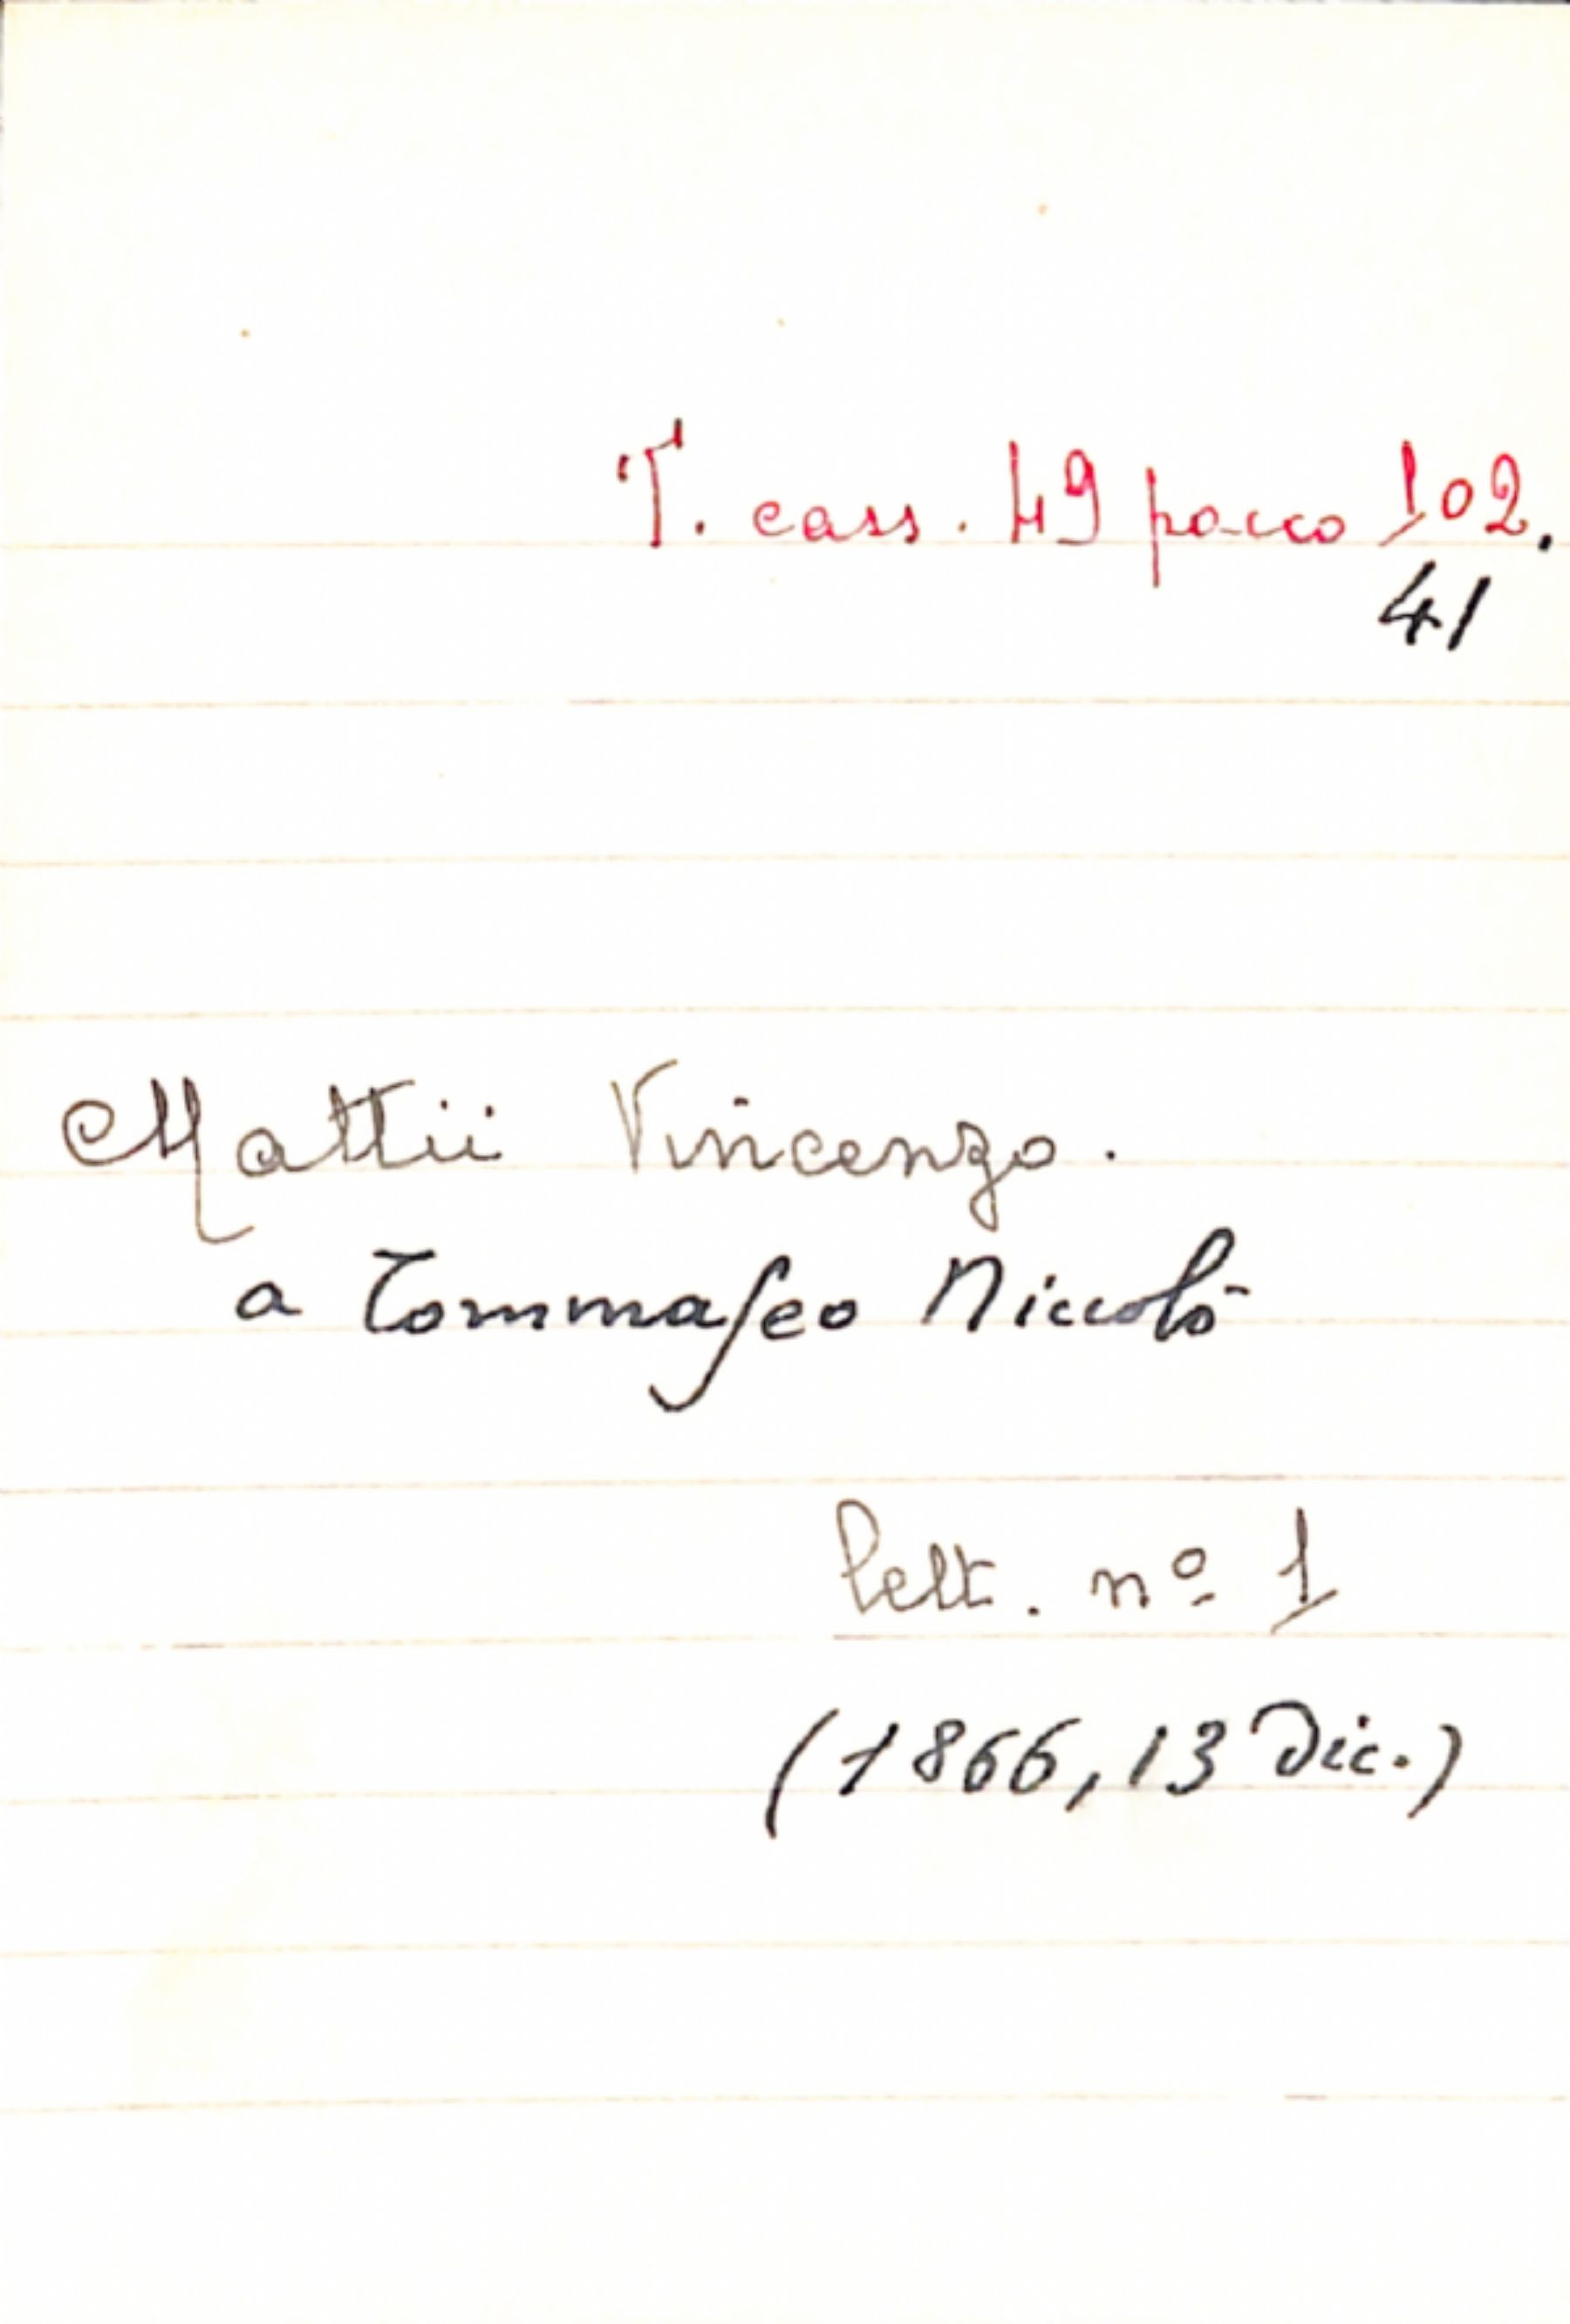 T. cass. 49 pacco 102.
41
Mattii Vincenzo.
a Tommaseo Niccolò
lett. nº 1
(1866, 13 Dic.)